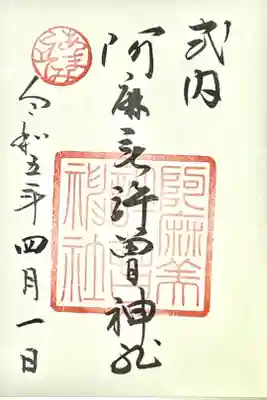 式内
阿麻美許曽神社
令和五年四月一日
阿麻美
許曽
神社